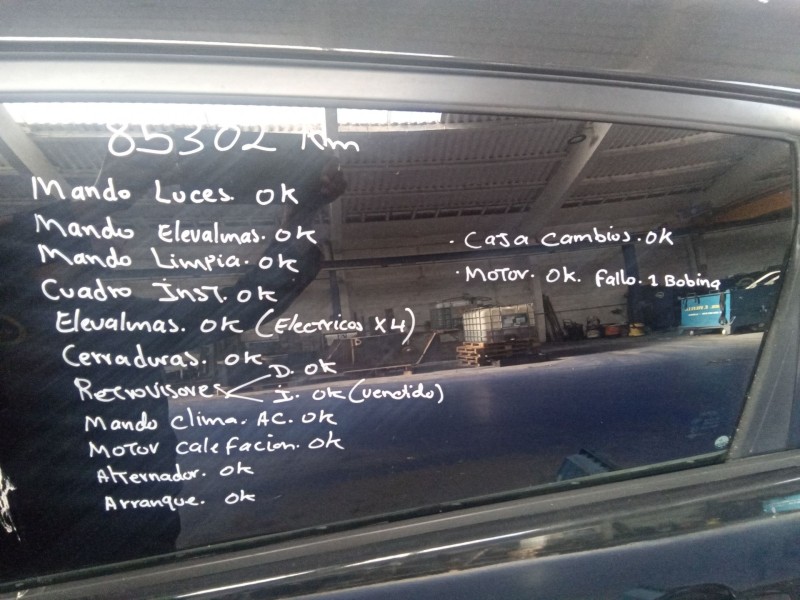 85302 Km
Mando Luces. OK
Mando Elevalunas. OK
Mando Limpia. OK
Cuadro Inst. OK
Elevalunas. OK (Electricos X4)
Cerraduras. OK
Retrovisores D. OK
I. OK (vendido)
Mando clima. AC. OK
Motor calefacion. OK
Alternador. OK
Arranque. OK
· Caja Cambios. OK
· Motor. OK. Fallo. 1 Bobina